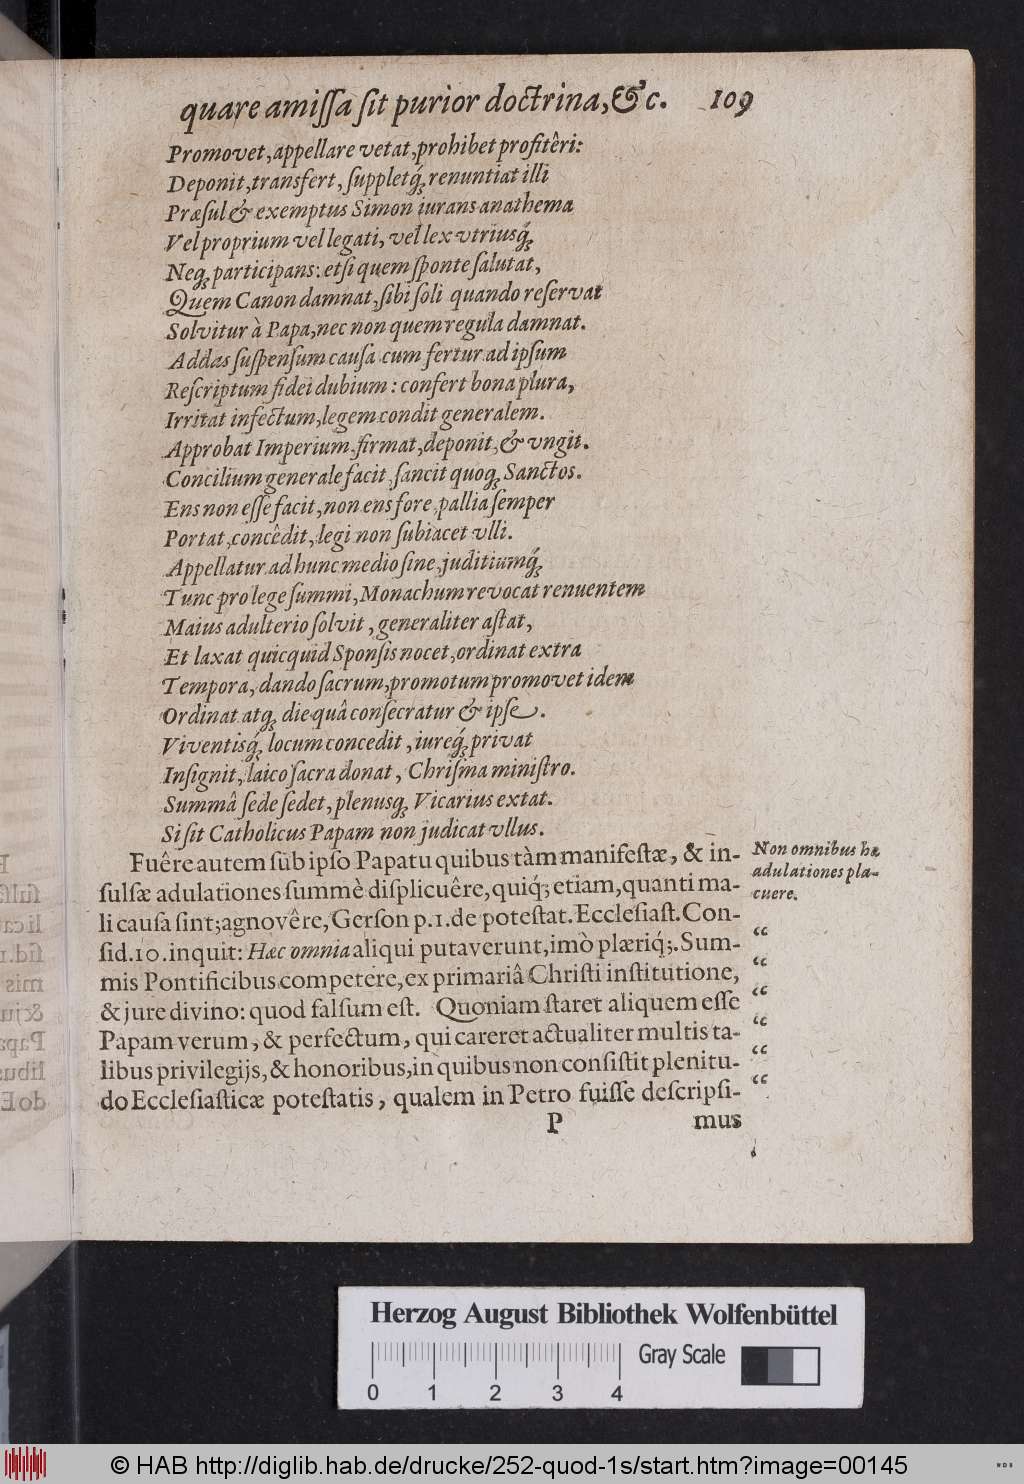 quare amiſſa ſit purior doctrina, &c. 109
Promovet, appellare vetat, prohibet profitêri:
Deponit, transfert, ſuppletq́; renuntiat illi
Præſul & exemptus Simon iurans anathema
Vel proprium vel legati, vel lex vtriusq́;
Neq; participans: etſi quem ſponte ſalutat,
Quem Canon damnat, ſibi ſoli quando reſervat
Solvitur à Papa, nec non quem regula damnat.
Addas ſuſpenſum cauſa cum fertur ad ipſum
Reſcriptum fidei dubium: confert bona plura,
Irritat infectum, legem condit generalem.
Approbat Imperium firmat, deponit, & vngit.
Concilium generale facit, ſancit quoq; Sanctos.
Ens non eſſe facit, non ens fore, pallia ſemper
Portat, concêdit, legi non ſubiacet vlli.
Appellatur ad hunc medio ſine, juditiumq́;
Tunc pro lege ſummi, Monachum revocat renuentem
Maius adulterio ſolvit, generaliter aſtat,
Et laxat quicquid Sponſis nocet, ordinat extra
Tempora, dando ſacrum, promotum promovet idem
Ordinat atq; die quâ conſecratur & ipſe.
Viventisq́; locum concedit, iureq́; privat
Inſignit, laico ſacra donat, Chriſma miniſtro.
Summâ ſede ſedet, plenusq; Vicarius extat.
Si ſit Catholicus Papam non judicat vllus.
Fuêre autem ſub ipſo Papatu quibus tàm manifeſtæ, & in-
ſulſæ adulationes ſummè diſplicuêre, quiq́; etiam, quanti ma-
li cauſa ſint; agnovêre, Gerſon p. 1. de poteſtat. Eccleſiaſt. Con-
ſid. 10. inquit: Hæc omnia aliqui putaverunt, imò plæriq́;. Sum-
mis Pontificibus competere, ex primariâ Chriſti inſtitutione,
& jure divino: quod falſum eſt. Quoniam ſtaret aliquem eſſe
Papam verum, & perfectum, qui careret actualiter multis ta-
libus privilegijs, & honoribus, in quibus non conſiſtit plenitu-
do Eccleſiaſticæ poteſtatis, qualem in Petro fuiſſe deſcripſi-
P mus
Non omnibus hæ
adulationes pla-
cuere.
“
“
“
“
“
“
Herzog August Bibliothek Wolfenbüttel
Gray Scale
0 1 2 3 4
© HAB http://diglib.hab.de/drucke/252-quod-1s/start.htm?image=00145